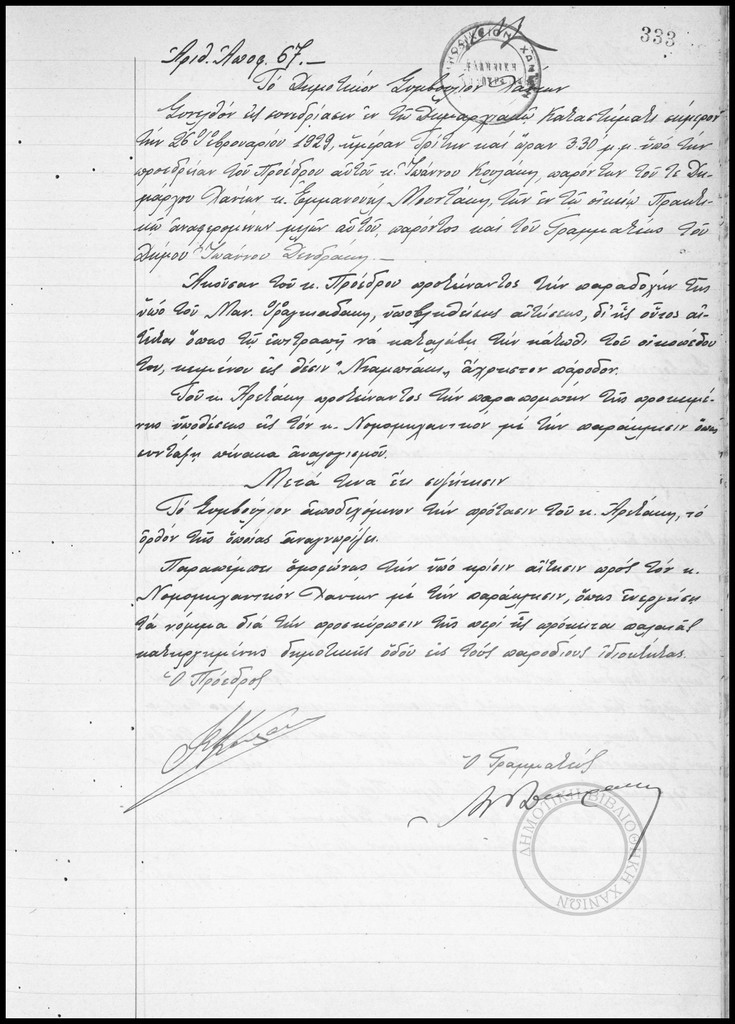 333
Ἀριθ. Ἀποφ. 67.-
Τὸ Δημοτικὸν Συμβούλιον Χανίων
Συνελθὸν εἰς συνεδρίασιν ἐν τῷ Δημαρχιακῷ Καταστήματι σήμερον
τὴν 26 Φεβρουαρίου 1929, ἡμέραν Τρίτην καὶ ὥραν 3.30 μ.μ. ὑπὸ τὴν
προεδρείαν τοῦ Προέδρου αὐτοῦ κ. Ἰωάννου Κουλάκη, παρόντων τοῦ τε Δη-
μάρχου Χανίων κ. Ἐμμανουὴλ Μουντάκη, τῶν ἐν τῷ οἰκείῳ Πρακτι-
κῷ ἀναφερομένων μελῶν αὐτοῦ, παρόντος καὶ τοῦ Γραμματέως τοῦ
Δήμου Ἰωάννου Δενδράκη.-
Ἀκοῦσαν τοῦ κ. Προέδρου προτείναντος τὴν παραδοχὴν τῆς
ὑπὸ τοῦ Μαν. ὑποβληθείσης αἰτήσεως, δι' ἧς οὗτος αἰ-
τεῖται ὅπως τῷ ἐπιτραπῇ νὰ καταλάβῃ τὴν κάτωθι τοῦ οἰκοπέδου
του, κειμένου εἰς θέσιν ἄχρηστον πάροδον.
Τοῦ κ. Ἀρετάκη προτείναντος τὴν παραπομπὴν τῆς προκειμέ-
νης ὑποθέσεως εἰς τὸν κ. Νομομηχανικὸν μὲ τὴν παράκλησιν ὅπως
συντάξῃ πίνακα ἀναλογισμοῦ.
Μετά τινα ἔτι συζήτησιν
Τὸ Συμβούλιον ἀποδεχόμενον τὴν πρότασιν τοῦ κ. Ἀρετάκη, τὸ
ὀρθὸν τῆς ὁποίας ἀναγνωρίζει.
Παραπέμπει ὁμοφώνως τὴν ὑπὸ κρίσιν αἴτησιν πρὸς τὸν κ.
Νομομηχανικὸν Χανίων μὲ τὴν παράκλησιν, ὅπως ἐνεργήσῃ
τὰ νόμιμα διὰ τὴν προσκύρωσιν τῆς περὶ ἧς πρόκειται παλαιᾶς
κατηργημένης δημοτικῆς ὁδοῦ εἰς τοὺς παροδίους ἰδιοκτήτας.
Ὁ Πρόεδρος
Ὁ Γραμματεύς
ΔΗΜΟΤΙΚΗ ΒΙΒΛΙΟΘΗΚΗ ΧΑΝΙΩΝ